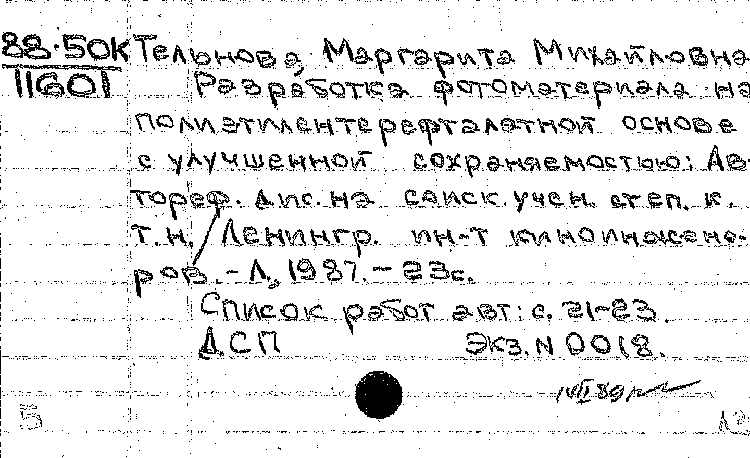 88-50К Тельнова Маргарита Михайловна
11601 Разработка фотоматериала на
полиэтилентерефталатной основе
с улучшенной сохраняемостью: Ав-
тореф. дис. на соиск. учен. степ. к.
т.н. / Ленингр. ин-т киноинжене-
ров. - Л., 1987. - 23с.
Список работ авт: с. 21-23.
ДСП Экз. N 0018.
5